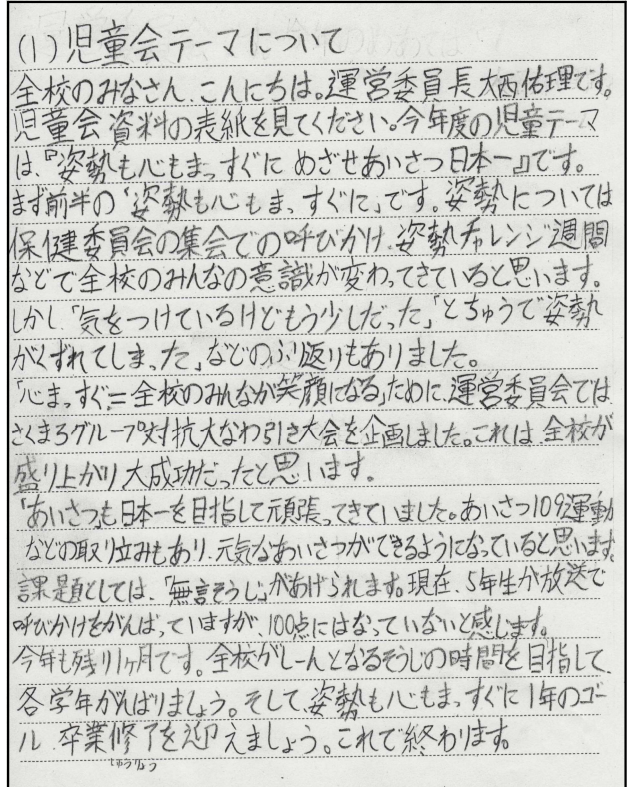 (1)児童会テーマについて
全校のみなさん、こんにちは。運営委員長大西佑理です。
児童会資料の表紙を見てください。今年度の児童テーマ
は、『姿勢も心もまっすぐに めざせあいさつ日本一』です。
まず前半の「姿勢も心もまっすぐに」です。姿勢については
保健委員会の集会での呼びかけ、姿勢チャレンジ週間
などで全校のみんなの意識が変わってきていると思います。
しかし「気をつけているけどもう少しだった」「とちゅうで姿勢
がくずれてしまった」などのふり返りもありました。
「心まっすぐ=全校のみんなが笑顔になる」ために、運営委員会では
さくまろグループ対抗大なわ引き大会を企画しました。これは、全校が
盛り上がり大成功だったと思います。
「あいさつ」も日本一を目指して頑張ってきていました。あいさつ109運動
などの取り立みもあり、元気なあいさつができるようになっていると思います。
課題としては、「無言そうじ」があげられます。現在、5年生が放送で
呼びかけをがんばっていますが、100点にはなっていないと感じます。
今年も残り1ヶ月です。全校がしーんとなるそうじの時間を目指して、
各学年がんばりましょう。そして、姿勢も心もまっすぐに1年のゴー
ル、卒業修了を迎えましょう。これで終わります。
しゅうりょう